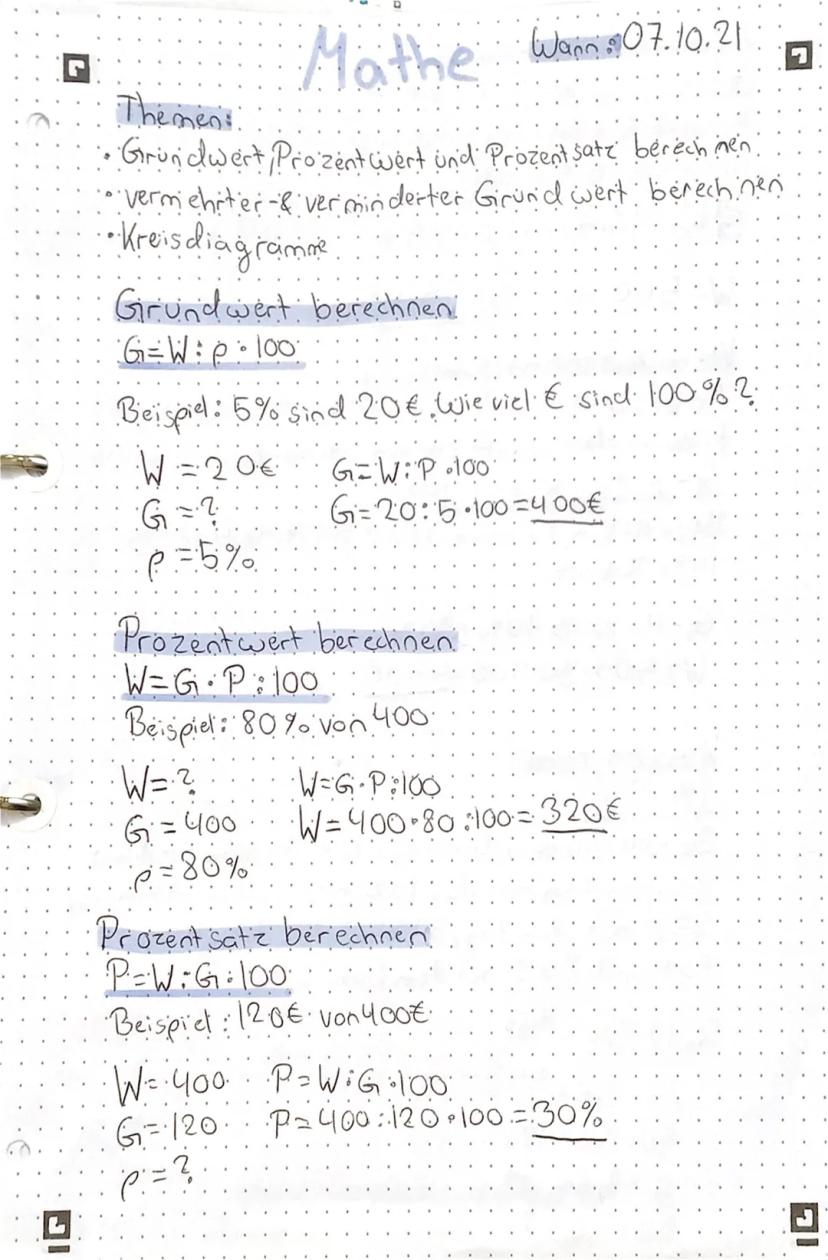 Mathe
Wann: 07.10.21
Themen:
• Grundwert, Prozentwert und Prozentsatz berechnen
• vermehrter- & verminderter Grundwert berechnen
• Kreisdiagramme
Grundwert berechnen
G=W:p·100
Beispiel: 5% sind 20€. Wie viel € sind 100%?
W=20€ G=W:P·100
G=? G=20:5·100=400€
p=5%
Prozentwert berechnen
W=G·P:100
Beispiel: 80% von 400
W=? W=G·P:100
G=400 W=400·80:100=320€
p=80%
Prozentsatz berechnen
P=W:G·100
Beispiel: 120€ von 400€
W=400 P=W:G·100
G=120 P=400:120·100=30%
p=?